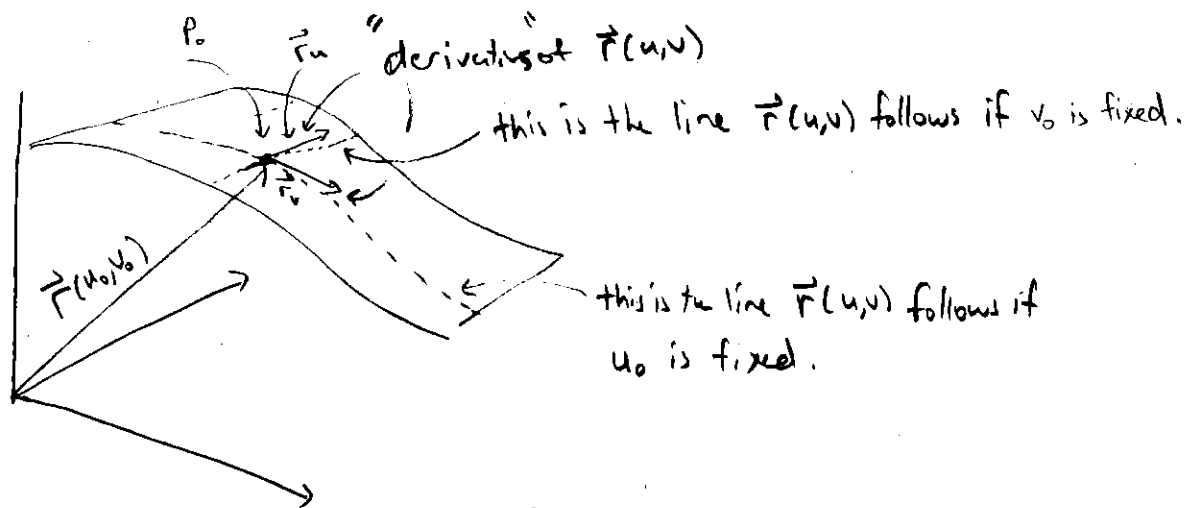 P₀
r⃗u "derivatives" of r⃗(u,v)
this is the line r⃗(u,v) follows if v₀ is fixed.
r⃗v
r⃗(u₀,v₀)
this is the line r⃗(u,v) follows if
u₀ is fixed.